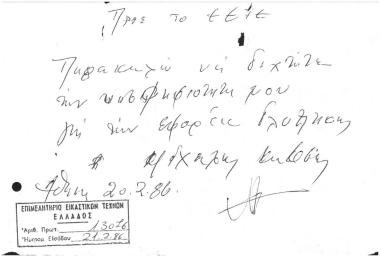 Προς το ΕΕΤΕ
Παρακαλώ να δεχτήτε
την υποψηφιοτητα μου
για την εφορεία γλυπτικης
Αθήνα 20.2.86.
ΕΠΙΜΕΛΗΤΗΡΙΟ ΕΙΚΑΣΤΙΚΩΝ ΤΕΧΝΩΝ
ΕΛΛΑΔΟΣ
Ἀριθ. Πρωτ. 13076
Ἡμερομ. Εἰσόδου 21.2.86